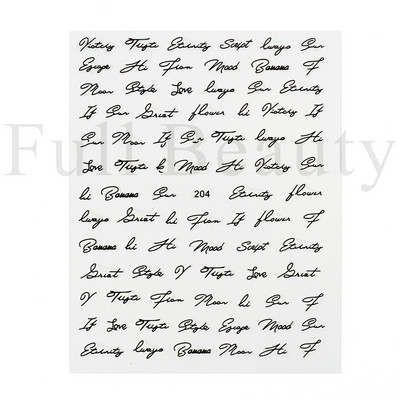 Victory Tuyta Eternity Script lways Sun
Escape Hi From Mood Banana F
Moon Style Love lways Sun Eternity
If Sun Great flower hi Victory If
Sun Moon If So Tuyta lways Hi
Love Tuyta k Mood Hi Victory Sun
hi Banana Sun 204 Eternity flower
lways Great hi From If flower F
Banana hi Hi Mood Script Eternity
Great Style V Tuyta Love Great
V Tuyta From Moon hi Sun F
If Love Tuyta Style Escape Mood Sun
Eternity lways Banana Moon Hi F
Full Beauty